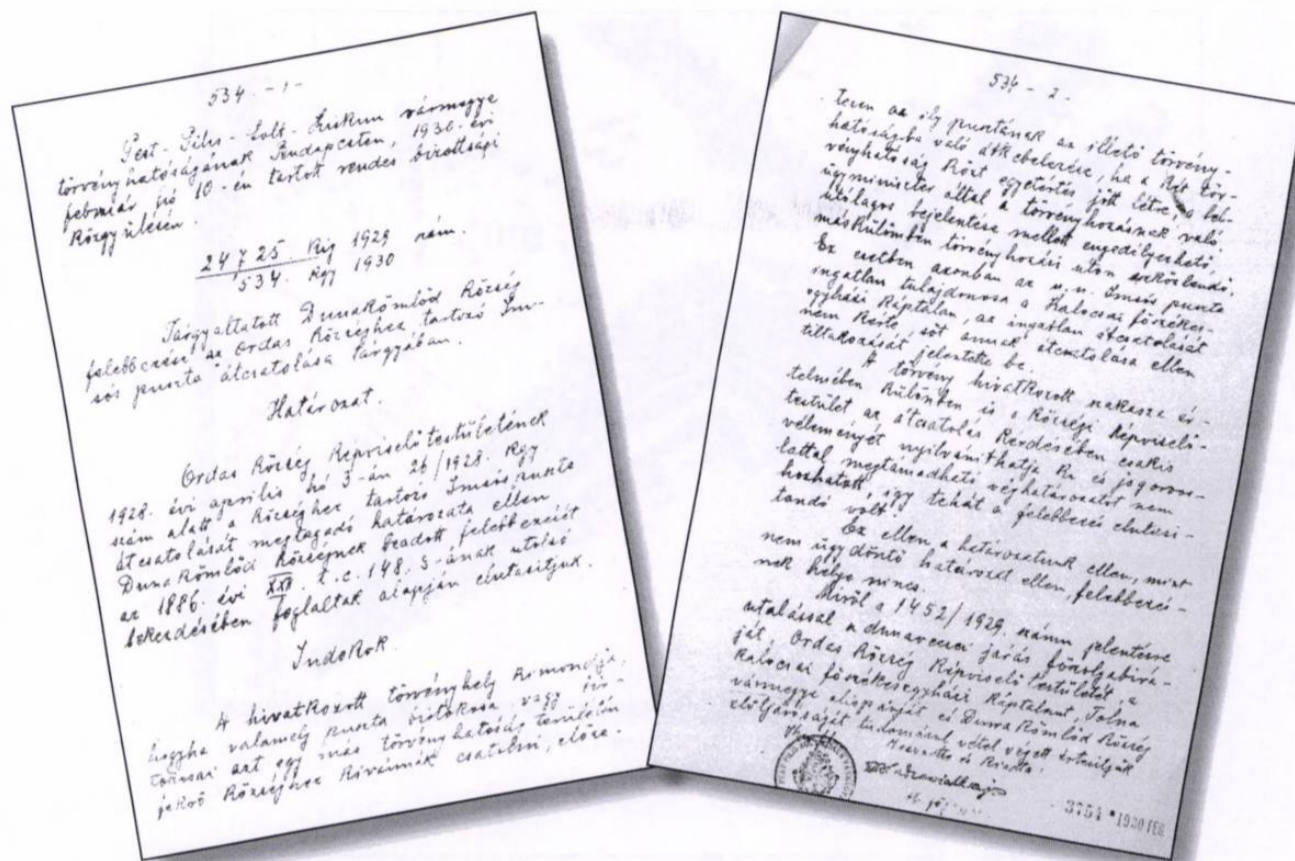 534. - 1 -
Pest - Pilis - Solt - Kiskun vármegye
törvényhatóságának Budapesten, 1930. évi
február hó 10-én tartott rendes bizottsági
közgyűlésén.
24725. kig 1929 szám.
534. kgy 1930
Tárgyaltatott Dunakömlőd község
felebbezése az Ordas községhez tartozó Im-
sós puszta átcsatolása tárgyában.
Határozat.
Ordas község képviselőtestületének
1928. évi április hó 3-án 26/1928. kgy
szám alatt a községhez tartozó Imsós puszta
átcsatolását megtagadó határozata ellen
Dunakömlőd községnek beadott felebbezését
az 1886. évi XXII. t.c. 148. §-ának utolsó
bekezdésében foglaltak alapján elutasítjuk.
Indokok.
A hivatkozott törvényhely kimondja,
hogyha valamely puszta birtokosa, vagy bir-
tokosai azt egy más törvényhatóság területén
fekvő községhez kívánnák csatolni, előze-
534 - 2 -
tesen az ily pusztának az illető törvény-
hatóságba való átkebelezése, ha a két tör-
vényhatóság közt egyetértés jött létre, a bel-
ügyminiszter által a törvényhozásnak való
utólagos bejelentése mellett engedélyezhető,
máskülönben törvényhozási úton eszközlendő.
Ez esetben azonban az u. n. Imsós puszta
ingatlan tulajdonosa a Kalocsai főszékes-
egyházi Káptalan, az ingatlan átcsatolását
nem kérte, sőt annak átcsatolása ellen
tiltakozását jelentette be.
A törvény hivatkozott szakasza ér-
telmében különben is a községi képviselő-
testület az átcsatolás kérdésében csakis
véleményét nyilváníthatja ki és jogorvos-
lattal megtámadható véghatározatot nem
hozhatott, így tehát a felebbezés elutasí-
tandó volt.
Ez ellen a határozatunk ellen, mint
nem ügydöntő határozat ellen, felebbezés-
nek helye nincs.
Miről a 1452/1929. számu jelentésre
utalással a dunavecsei járás főszolgabirá-
ját, Ordas község képviselő testületét, a
kalocsai főszékesegyházi káptalant, Tolna
vármegye alispánját és Dunakömlőd község
elöljáróságát tudomásul vétel végett értesítjük
3754 * 1930 FEB.